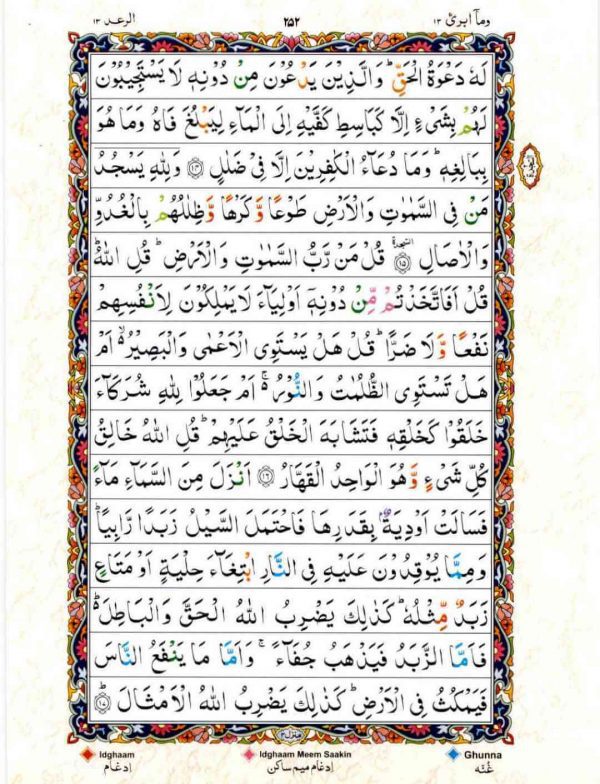 وما ابرئ ١٣ ٢٥٢ الرعد ١٣
لَهٗ دَعْوَةُ الْحَقِّ ؕ وَالَّذِيْنَ يَدْعُوْنَ مِنْ دُوْنِهٖ لَا يَسْتَجِيْبُوْنَ
لَهُمْ بِشَیْءٍ اِلَّا كَبَاسِطِ كَفَّيْهِ اِلَى الْمَآءِ لِيَبْلُغَ فَاهُ وَمَا هُوَ
بِبَالِغِهٖ ؕ وَمَا دُعَآءُ الْكٰفِرِيْنَ اِلَّا فِیْ ضَلٰلٍ ﴿١٤﴾ وَلِلّٰهِ يَسْجُدُ
مَنْ فِی السَّمٰوٰتِ وَالْاَرْضِ طَوْعًا وَّكَرْهًا وَّظِلٰلُهُمْ بِالْغُدُوِّ
وَالْاٰصَالِ ﴿١٥﴾ السجدة قُلْ مَنْ رَّبُّ السَّمٰوٰتِ وَالْاَرْضِ ؕ قُلِ اللّٰهُ ؕ
قُلْ اَفَاتَّخَذْتُمْ مِّنْ دُوْنِهٖۤ اَوْلِيَآءَ لَا يَمْلِكُوْنَ لِاَنْفُسِهِمْ
نَفْعًا وَّلَا ضَرًّا ؕ قُلْ هَلْ يَسْتَوِی الْاَعْمٰى وَالْبَصِيْرُ ۙ اَمْ
هَلْ تَسْتَوِی الظُّلُمٰتُ وَالنُّوْرُ ۚ اَمْ جَعَلُوْا لِلّٰهِ شُرَكَآءَ
خَلَقُوْا كَخَلْقِهٖ فَتَشَابَهَ الْخَلْقُ عَلَيْهِمْ ؕ قُلِ اللّٰهُ خَالِقُ
كُلِّ شَیْءٍ وَّهُوَ الْوَاحِدُ الْقَهَّارُ ﴿١٦﴾ اَنْزَلَ مِنَ السَّمَآءِ مَآءً
فَسَالَتْ اَوْدِيَةٌۢ بِقَدَرِهَا فَاحْتَمَلَ السَّيْلُ زَبَدًا رَّابِيًا ؕ
وَمِمَّا يُوْقِدُوْنَ عَلَيْهِ فِی النَّارِ ابْتِغَآءَ حِلْيَةٍ اَوْ مَتَاعٍ
زَبَدٌ مِّثْلُهٗ ؕ كَذٰلِكَ يَضْرِبُ اللّٰهُ الْحَقَّ وَالْبَاطِلَ ؕ
فَاَمَّا الزَّبَدُ فَيَذْهَبُ جُفَآءً ۚ وَاَمَّا مَا يَنْفَعُ النَّاسَ
فَيَمْكُثُ فِی الْاَرْضِ ؕ كَذٰلِكَ يَضْرِبُ اللّٰهُ الْاَمْثَالَ ؕ ﴿١٧﴾
منزل ٣
Idghaam Idghaam Meem Saakin Ghunna
ادغام ادغام میم ساکن غنّه